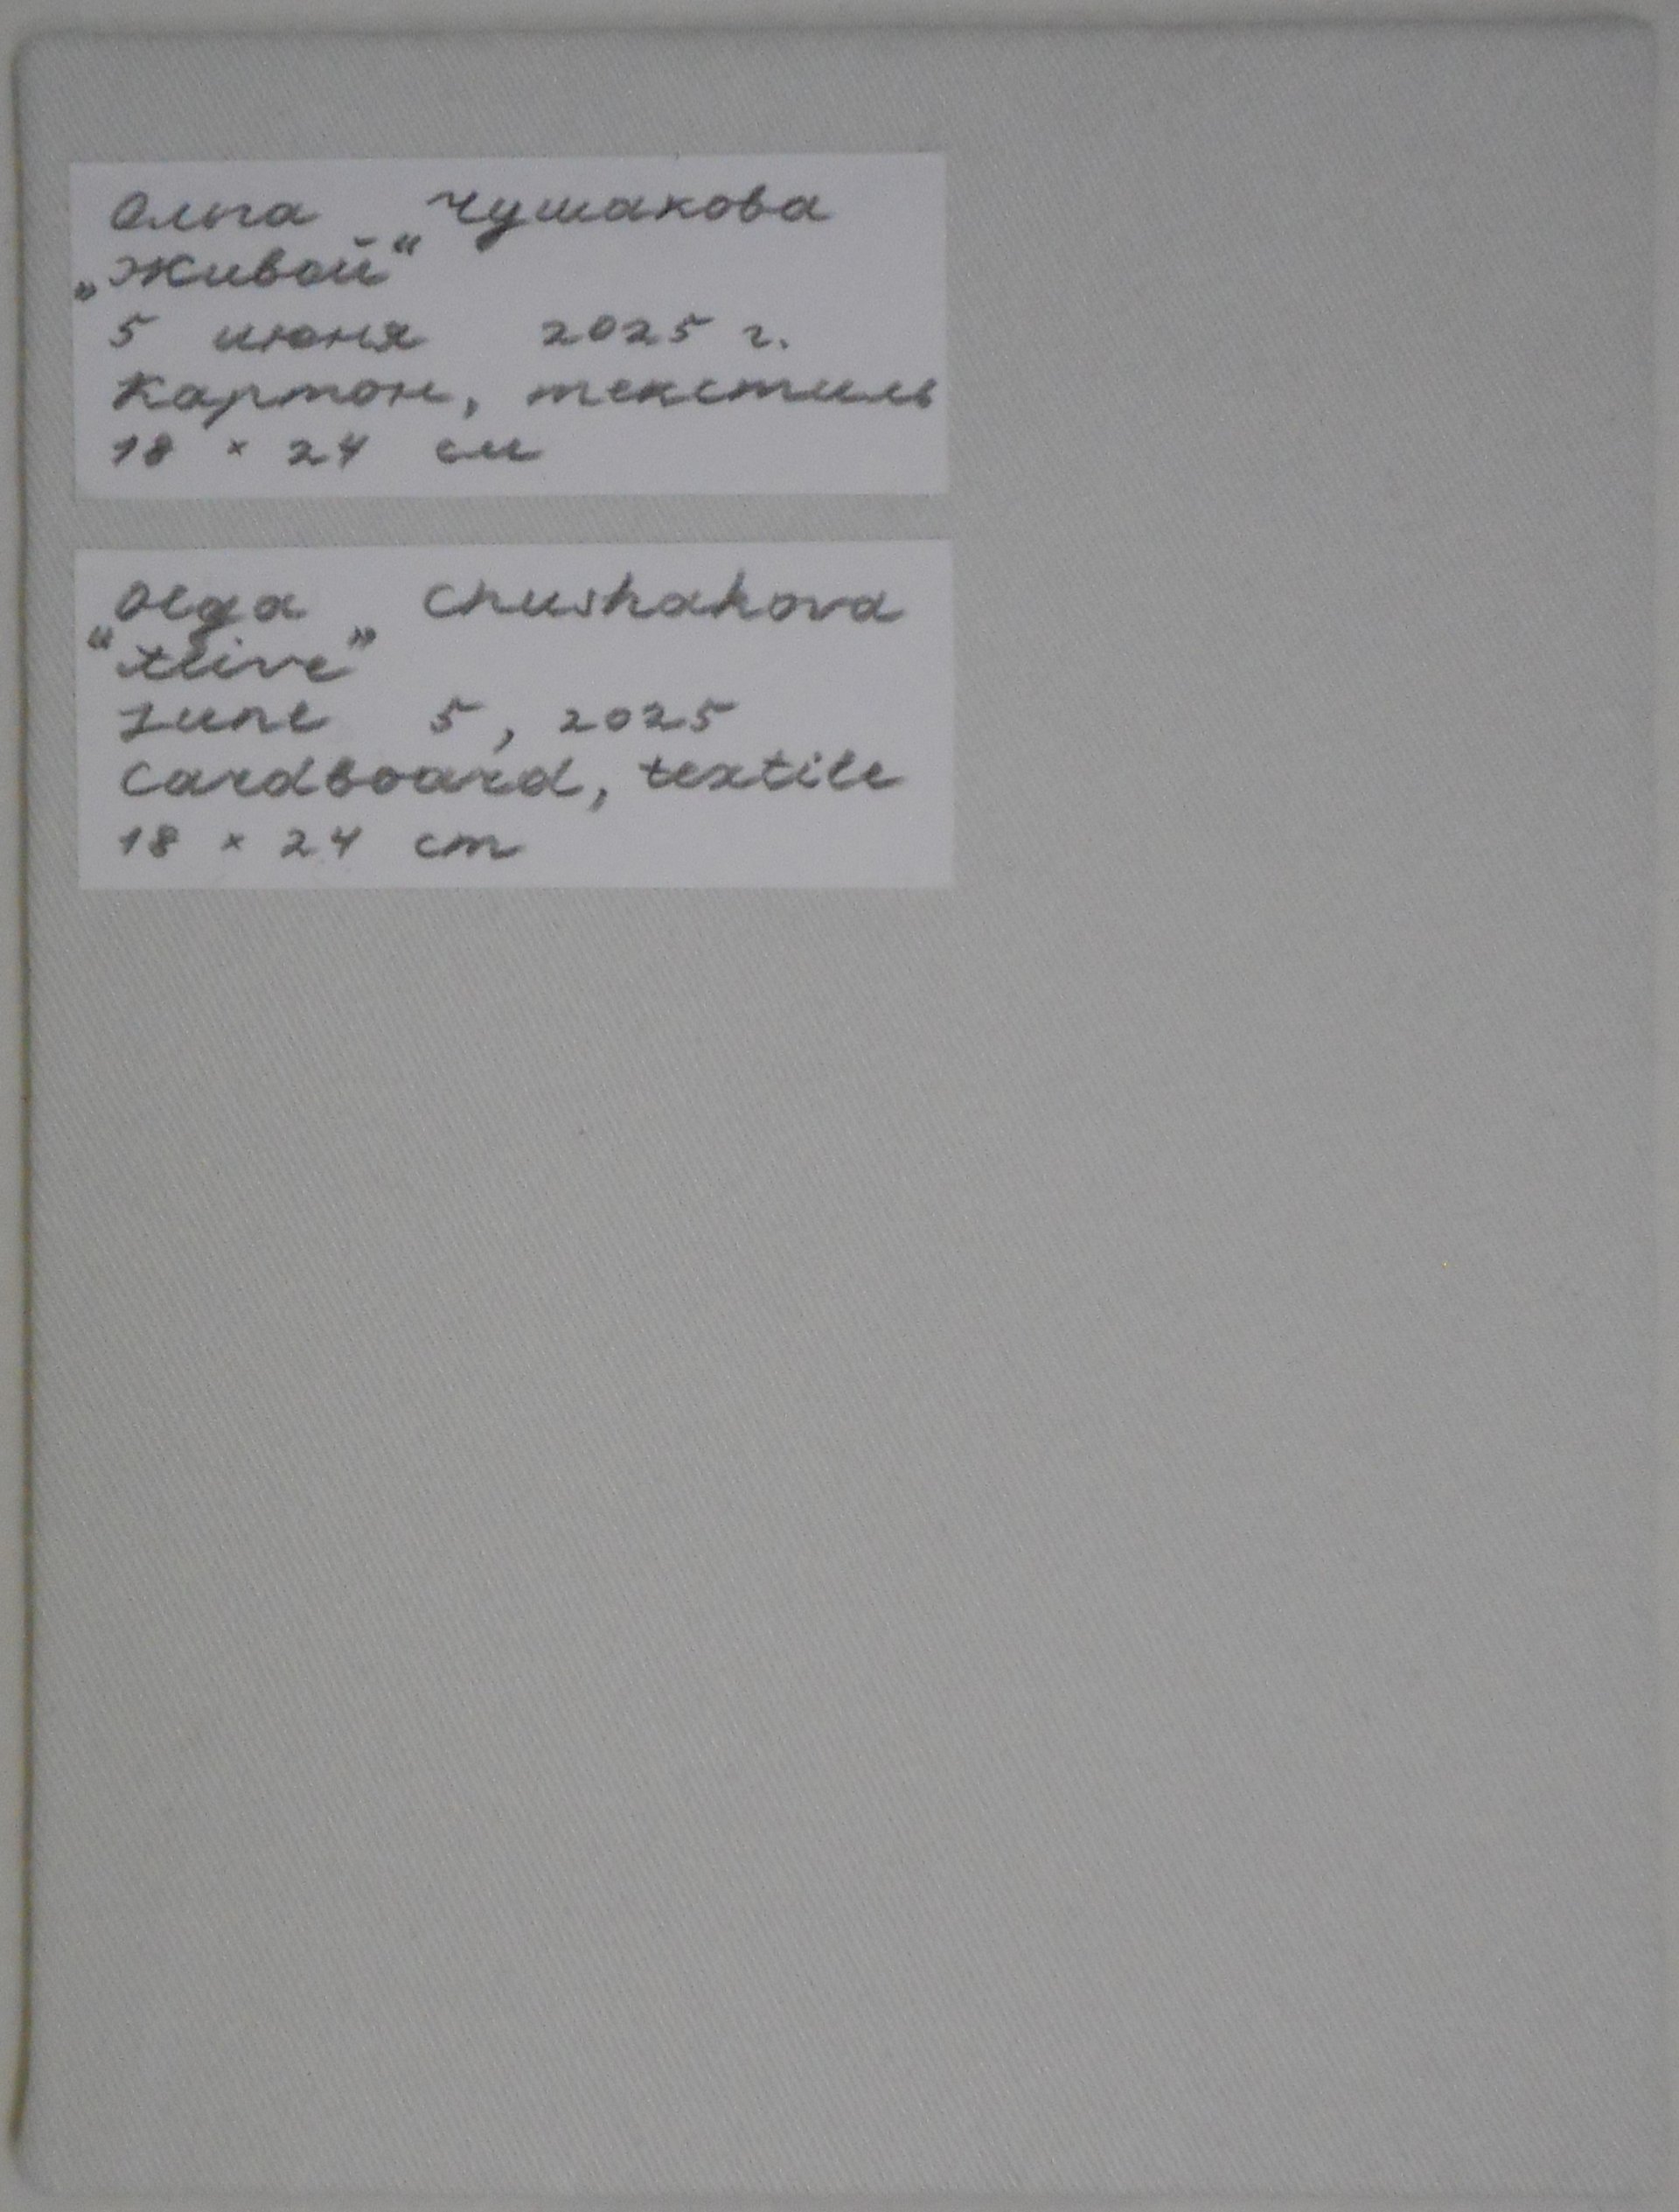 Ольга Чушакова
„Живой“
5 июня 2025 г.
Картон, текстиль
18 × 24 см
Olga Chushakova
“Alive”
June 5, 2025
Cardboard, textile
18 × 24 cm